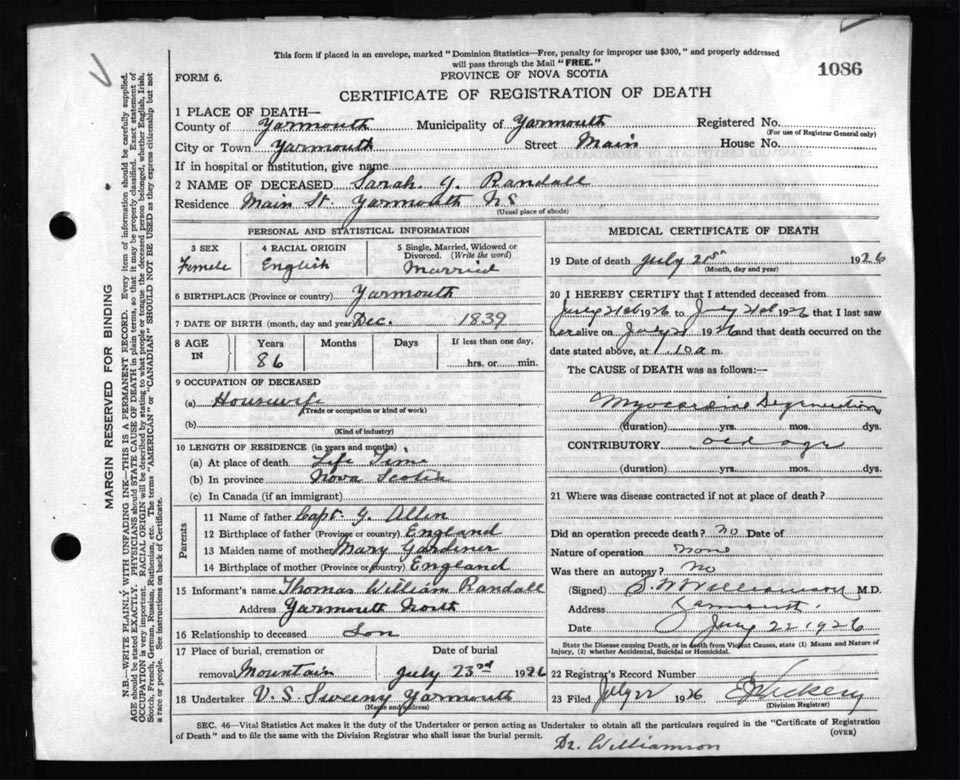 This form if placed in an envelope, marked "Dominion Statistics—Free, penalty for improper use $300," and properly addressed
will pass through the Mail "FREE."
FORM 6.
PROVINCE OF NOVA SCOTIA
1086
CERTIFICATE OF REGISTRATION OF DEATH
1 PLACE OF DEATH—
County of Yarmouth Municipality of Yarmouth Registered No.
(For use of Registrar General only)
City or Town Yarmouth Street Main House No.
If in hospital or institution, give name
2 NAME OF DECEASED Sarah Y. Randall
Residence Main St. Yarmouth NS
(Usual place of abode)
PERSONAL AND STATISTICAL INFORMATION
3 SEX 4 RACIAL ORIGIN 5 Single, Married, Widowed or
Divorced. (Write the word)
Female English Married
6 BIRTHPLACE (Province or country) Yarmouth
7 DATE OF BIRTH (month, day and year) Dec. 1839
8 AGE IN Years Months Days If less than one day,
86 hrs. or min.
9 OCCUPATION OF DECEASED
(a) Housewife
(Trade or occupation or kind of work)
(b)
(Kind of industry)
10 LENGTH OF RESIDENCE (in years and months)
(a) At place of death Life Time
(b) In province Nova Scotia
(c) In Canada (if an immigrant)
Parents
11 Name of father Capt. G. Allen
12 Birthplace of father (Province or country) England
13 Maiden name of mother Mary Gardiner
14 Birthplace of mother (Province or country) England
15 Informant's name Thomas William Randall
Address Yarmouth North
16 Relationship to deceased Son
17 Place of burial, cremation or Date of burial
removal Mountain July 23rd 1926
18 Undertaker V. S. Sweeny Yarmouth
(Name and address)
MEDICAL CERTIFICATE OF DEATH
19 Date of death July 21st 1926
(Month, day and year)
20 I HEREBY CERTIFY that I attended deceased from
July 21st 1926 to July 21st 1926 that I last saw
her alive on July 21 1926 and that death occurred on
date stated above, at 1.10 a m.
The CAUSE of DEATH was as follows:—
Myocardial Degeneration
(duration) yrs. mos. dys.
CONTRIBUTORY old age
(duration) yrs. mos. dys.
21 Where was disease contracted if not at place of death?
Did an operation precede death? no Date of
Nature of operation None
Was there an autopsy? No
(Signed) S. W. Williamson M.D.
Address Yarmouth
Date July 22 1926
State the Disease causing Death, or in death from Violent Causes, state (1) Means and Nature of
Injury, (2) whether Accidental, Suicidal or Homicidal.
22 Registrar's Record Number
23 Filed July 22 1926
(Division Registrar)
SEC. 46—Vital Statistics Act makes it the duty of the Undertaker or person acting as Undertaker to obtain all the particulars required in the "Certificate of Registration
of Death" and to file the same with the Division Registrar who shall issue the burial permit.
(OVER)
Dr. Williamson
MARGIN RESERVED FOR BINDING
N.B.—WRITE PLAINLY WITH UNFADING INK—THIS IS A PERMANENT RECORD. Every item of information should be carefully supplied.
AGE should be stated EXACTLY. PHYSICIANS should STATE CAUSE OF DEATH in plain terms, so that it may be properly classified. Exact statement of
OCCUPATION is very important. RACIAL ORIGIN will be described by stating to what people or tongue the deceased person belonged, whether English, Irish,
Scotch, French, German, Russian, Ruthenian, etc. The terms "AMERICAN" or "CANADIAN" SHOULD NOT BE USED as they express citizenship but not
a race or people. See instructions on back of Certificate.